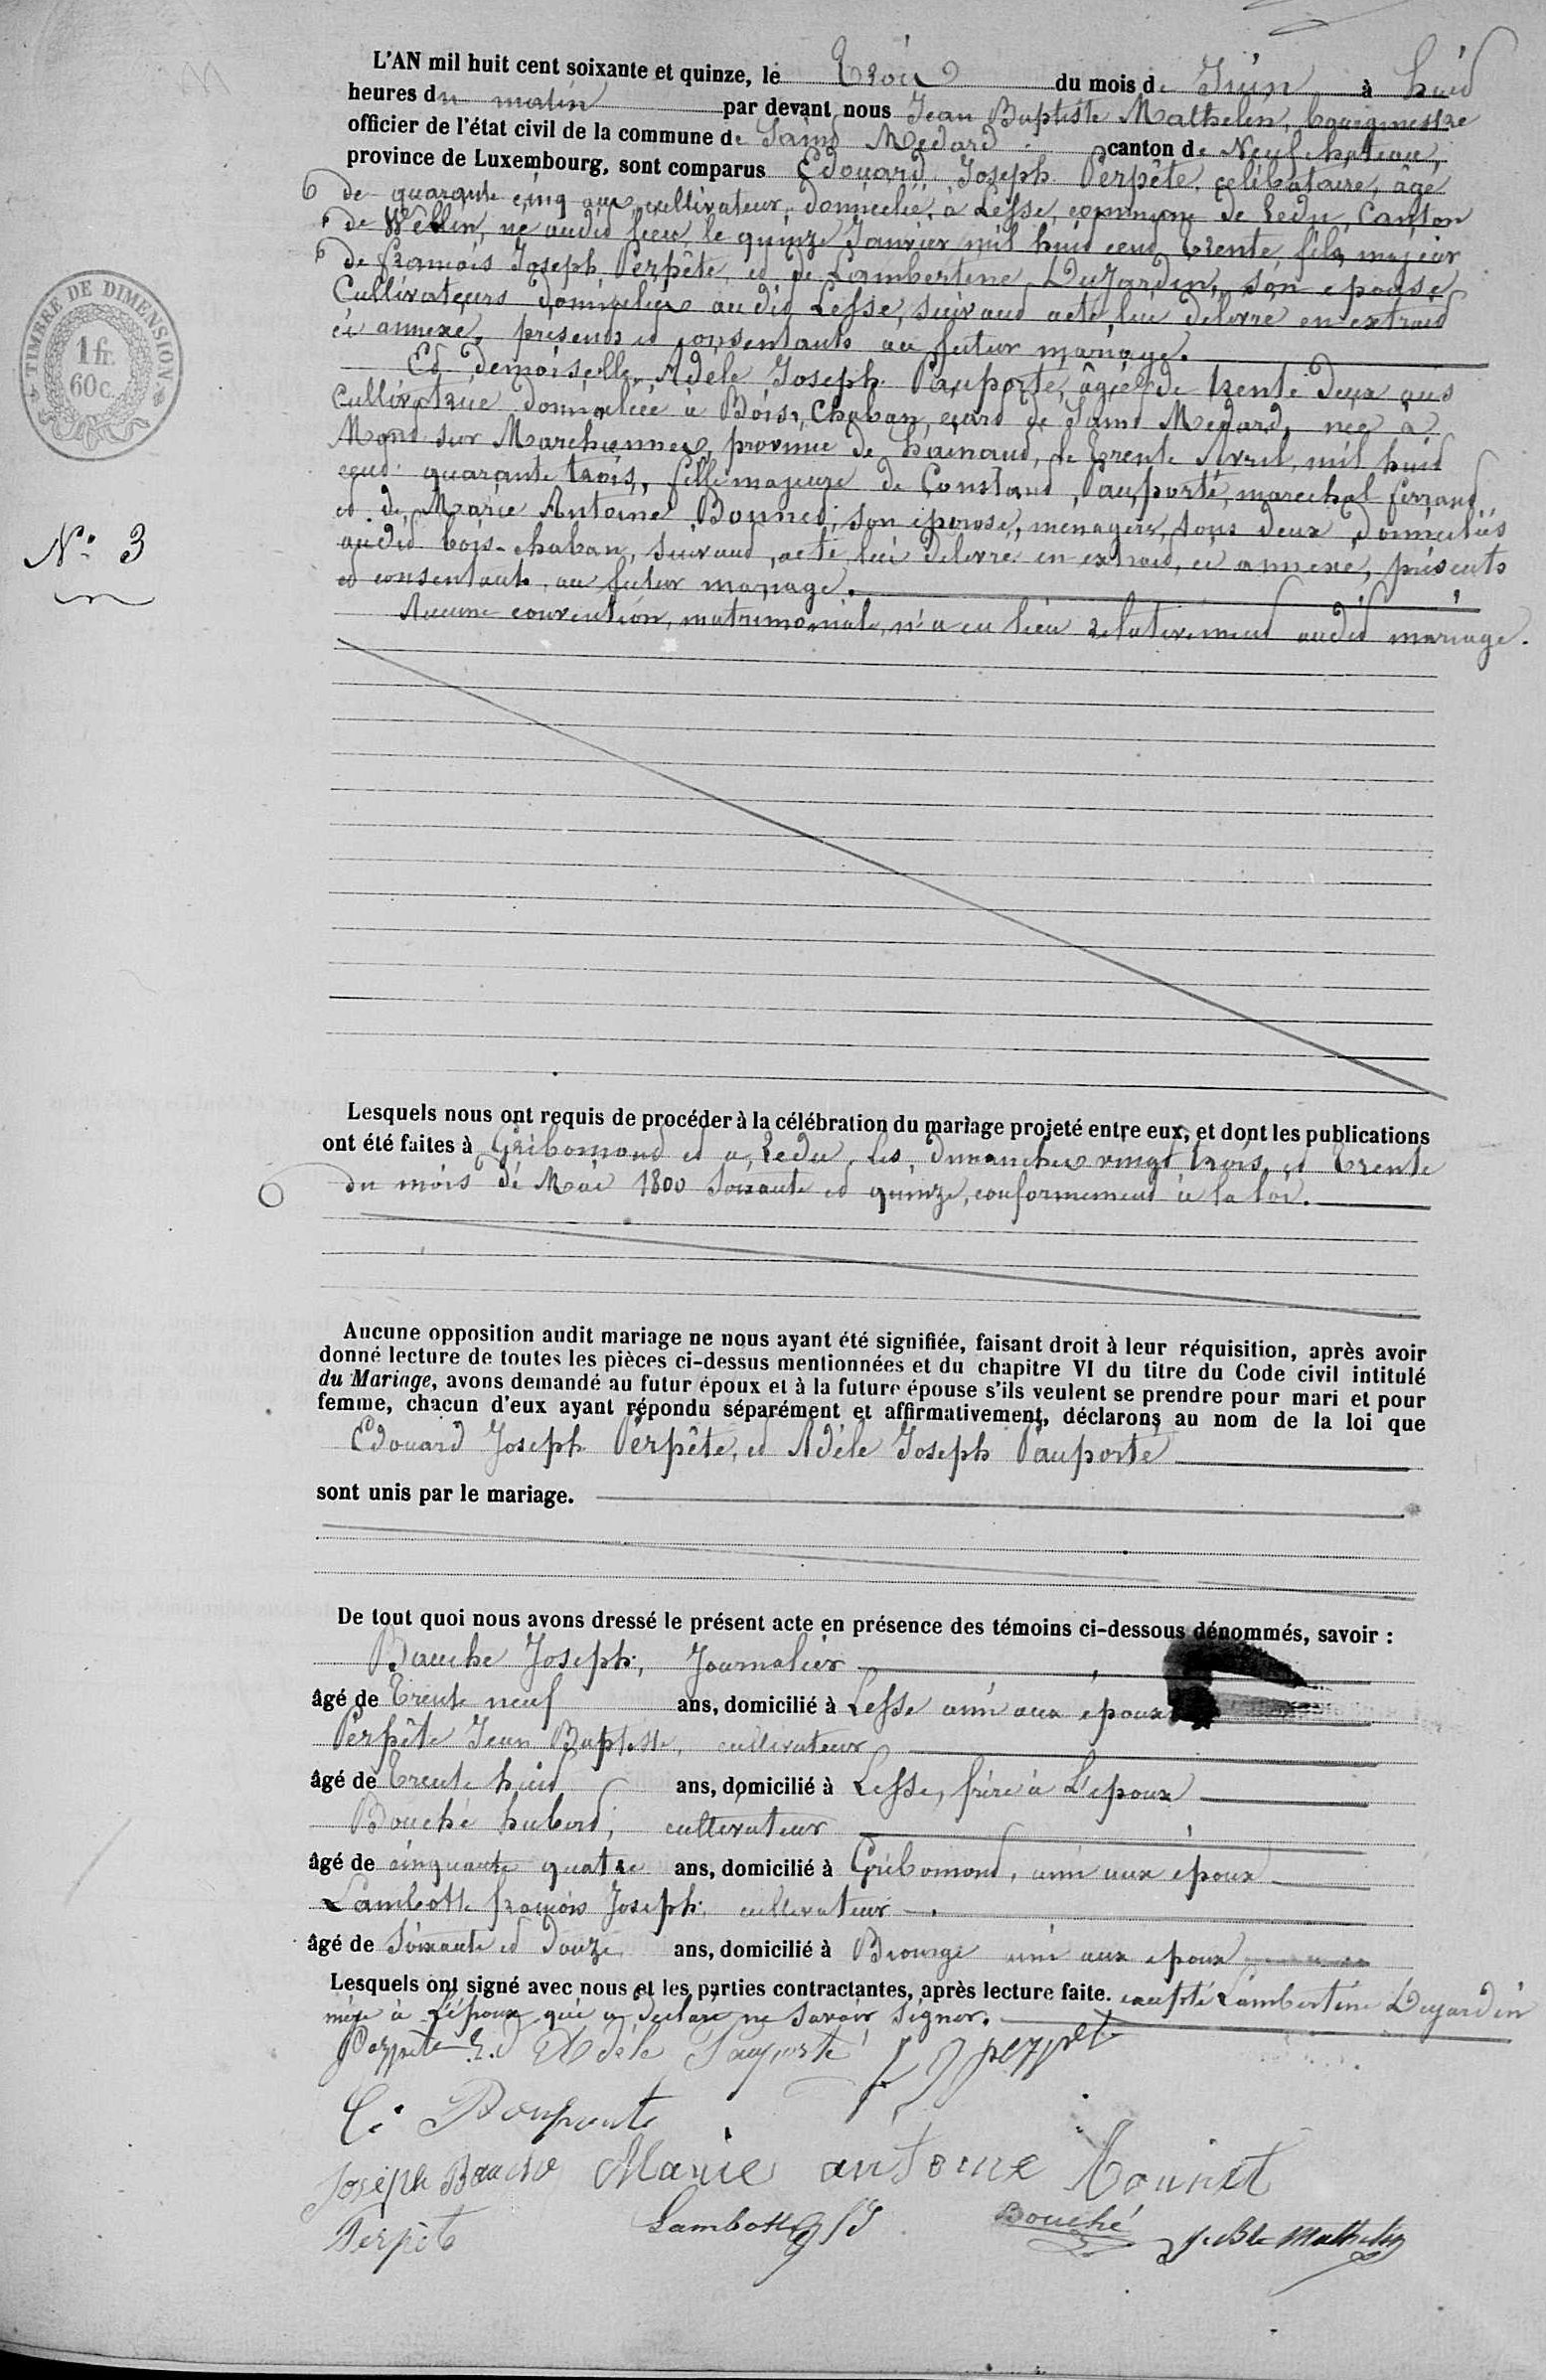 L'AN mil huit cent soixante et quinze, le Trois du mois de Juin à huid
heures du matin par devant nous Jean Baptiste Mathelin, bourgmestre
officier de l'état civil de la commune de Saint Medard canton de Neufchateau,
province de Luxembourg, sont comparus Edouard Joseph Perpête, célibataire, âgé
de quarante cinq ans, cultivateur, domicilié à Lesse, commune de Redu, Canton
de Wellin, né audid lieu le quinze Janvier mil huid cend trente, fils majeur
de françois Joseph Perpête, ed de Lambertine Dujardin, son epouse,
Cultivateurs domiciliés audid Lesse, suivand acte lui délivré en extraid
ci annexé, présents ed consentants au futur mariage.
Ed demoiselle Adèle Joseph Pauporté, âgée de trente deux ans
Cultivatrice domiciliée à Bois, Chaban, écard de Saint Medard, née à
Mond sur Marchiennes, province de hainaud, le trente Avril, mil huid
cend quarante trois, fille majeure de Constand Pauporté, maréchal ferrand,
ed de Marie Antoine Bonned, son épouse, ménagère, tous deux domiciliés
audid bois-chaban, suivand acte lui délivré en extraid, ci annexé, présents
ed consentants au futur mariage.
N° 3
Aucune convention matrimoniale n'a eu lieu relativement audid mariage.
TIMBRE DE DIMENSION
1 fr.
60 c.
Lesquels nous ont requis de procéder à la célébration du mariage projeté entre eux, et dont les publications
ont été faites à Gribomond ed a Redu, les dimanches vingt trois ed trente
du mois de Mai 1800 soixante ed quinze, conformémend à la loi.
Aucune opposition audit mariage ne nous ayant été signifiée, faisant droit à leur réquisition, après avoir
donné lecture de toutes les pièces ci-dessus mentionnées et du chapitre VI du titre du Code civil intitulé
du Mariage, avons demandé au futur époux et à la future épouse s'ils veulent se prendre pour mari et pour
femme, chacun d'eux ayant répondu séparément et affirmativement, déclarons au nom de la loi que
Edouard Joseph Perpête, ed Adèle Joseph Pauporté
sont unis par le mariage.
De tout quoi nous avons dressé le présent acte en présence des témoins ci-dessous dénommés, savoir :
Bauche Joseph, Journalier
âgé de Trente neuf ans, domicilié à Lesse ami aux époux
Perpête Jean Baptiste, cultivateur
âgé de Trente huid ans, domicilié à Lesse, frère à L'époux
Bouché huberd, cultivateur
âgé de cinquante quatre ans, domicilié à Gribomond, ami aux époux
Lambotte françois Joseph, cultivateur
âgé de Soixante ed Douze ans, domicilié à ami aux époux
Lesquels ont signé avec nous et les parties contractantes, après lecture faite. excepté Lambertine Dujardin
mère à l'époux qui a déclaré ne savoir signer.
Perpête E. Adéle Pauporté F J perpet
C. Pouporte
Joseph Bauche Marie antoine Bonnet
Perpête Lambotte f J Bouché J. Bte Mathelin